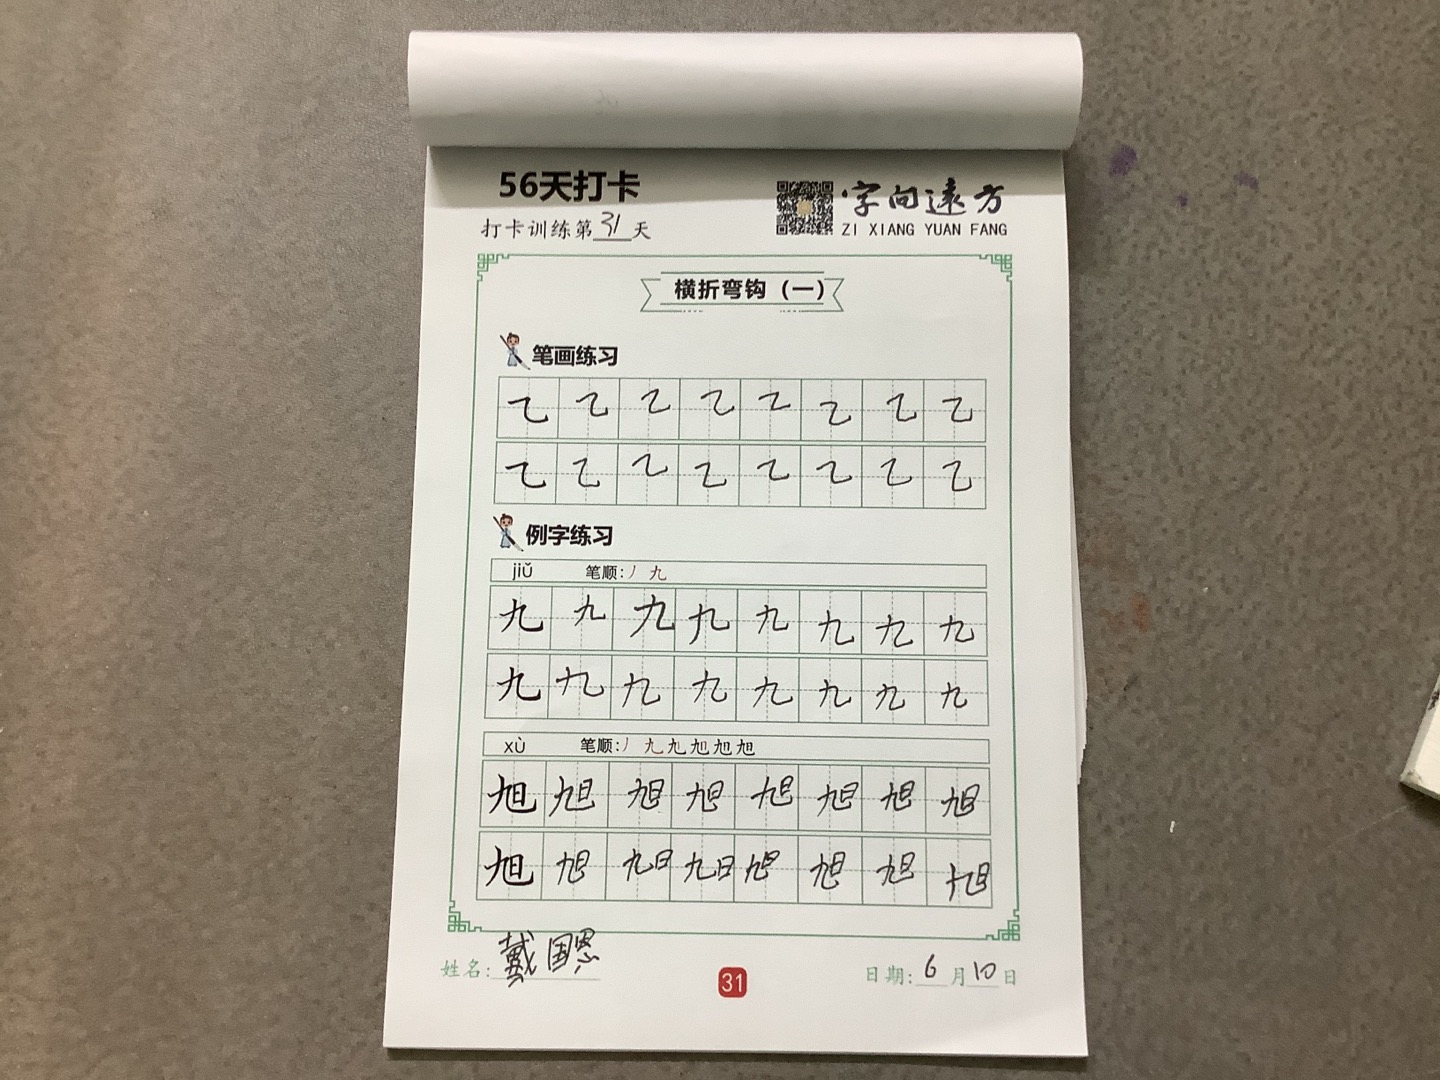 56天打卡
字向遠方
打卡训练第31天
ZI XIANG YUAN FANG
横折弯钩（一）
笔画练习
乙乙乙乙乙乙乙乙
乙乙乙乙乙乙乙乙
例字练习
jiǔ 笔顺:丿九
九九九九九九九九
九九九九九九九九
xù 笔顺:丿九九旭旭旭
旭旭旭旭旭旭旭旭
旭旭旭旭旭旭旭旭
姓名:戴国恩
31
日期:6月10日